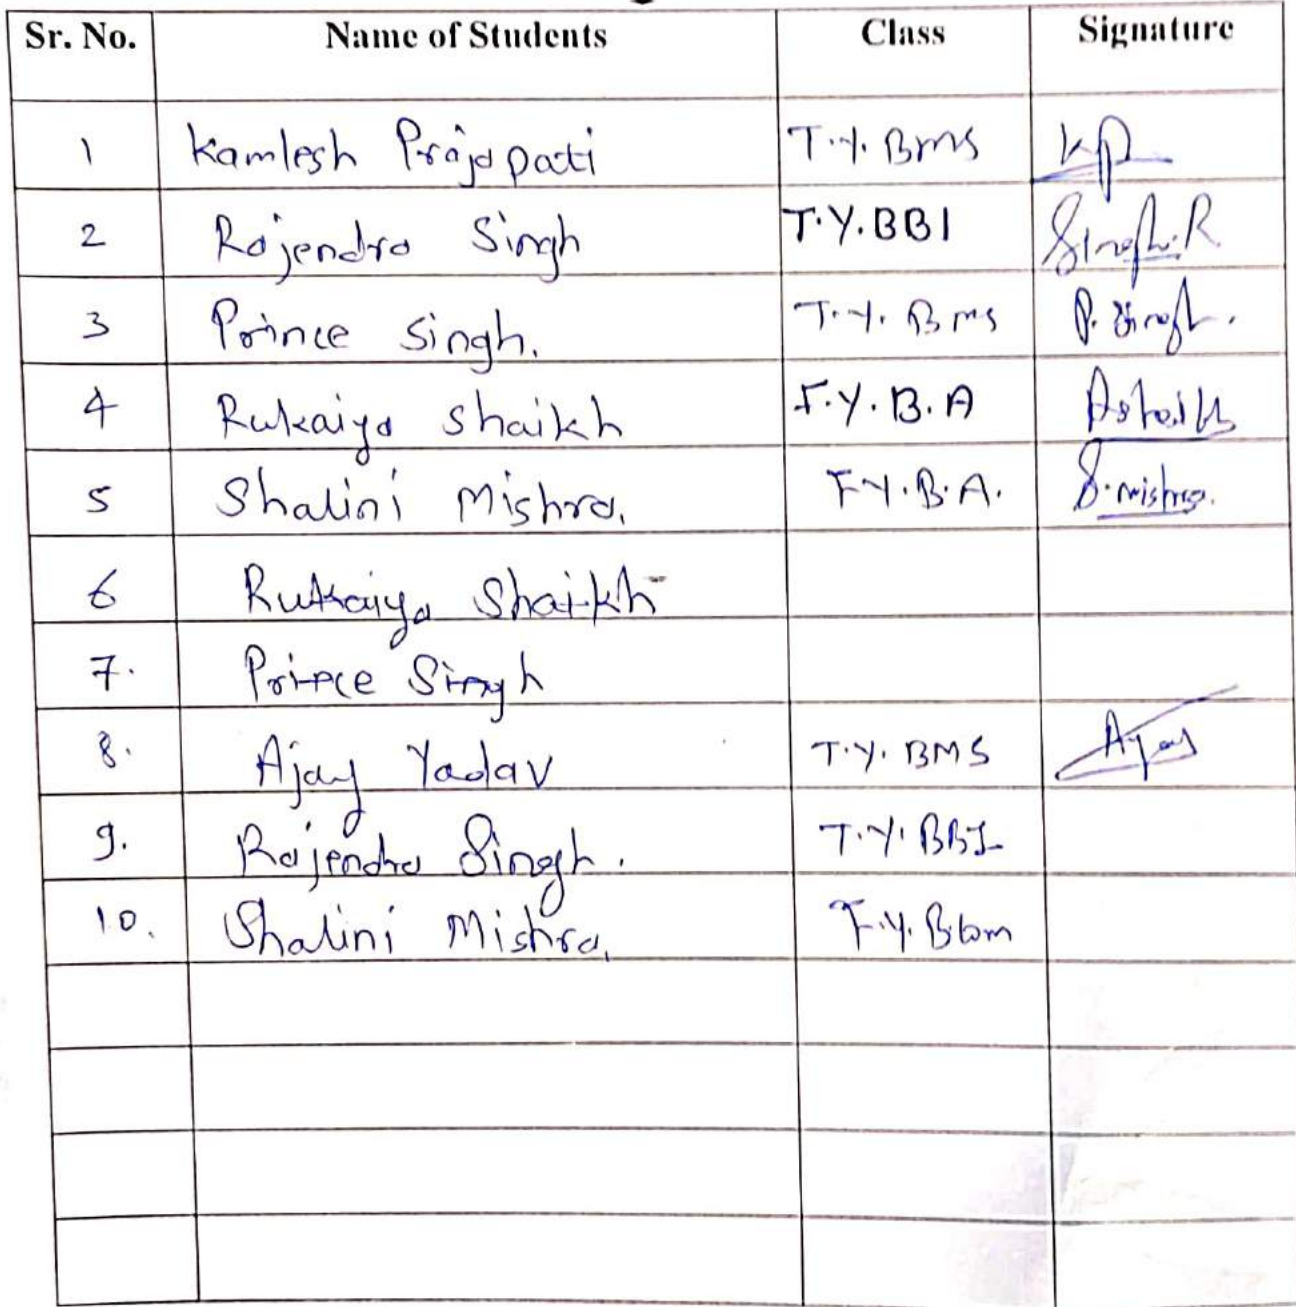 Sr. No. Name of Students Class Signature
1 Kamlesh Prajapati T.Y. BMS KP
2 Rajendra Singh T.Y.BBI Singh.R
3 Prince Singh. T.Y. BMS P. Singh.
4 Rukaiya Shaikh F.Y.B.A
5 Shalini Mishra. F.Y.B.A. S.mishra.
6 Rukaiya Shaikh
7. Prince Singh
8. Ajay Yadav T.Y. BMS Ajay
9. Rajendra Singh. T.Y. BBI
10. Shalini Mishra. F.Y. B.Com